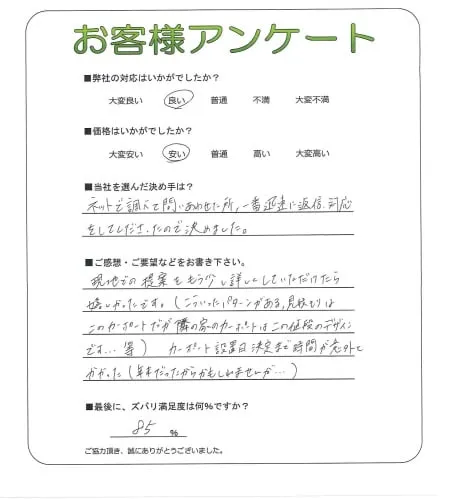 お客様アンケート
■弊社の対応はいかがでしたか?
大変良い 良い 普通 不満 大変不満
■価格はいかがでしたか?
大変安い 安い 普通 高い 大変高い
■当社を選んだ決め手は?
ネットで調べて問い合わせた所、一番迅速に返信、対応
をしてくださったので決めました。
■ご感想・ご要望などをお書き下さい。
現地での提案をもう少し詳しくしていただけたら
嬉しかったです。(こういったパターンがある,見積もりは
このカーポートだが隣の家のカーポートはこの値段のデザイン
です…等) カーポート設置日決定まで時間が意外と
かかった(年末だったからかもしれませんが…)
■最後に、ズバリ満足度は何%ですか?
85 %
ご協力頂き、誠にありがとうございました。